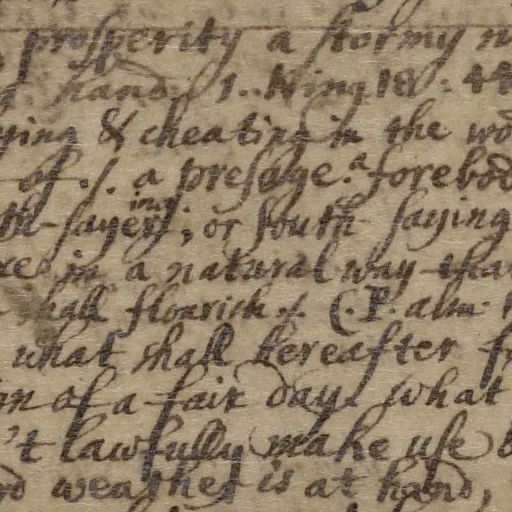 prosperity a stormy
hand. 1. King 18: 44
ying & cheating in the wo
of. /. a presage. a forebod
th-sayers ing, or south saying
re in a natural way tha
shall flourish /. (. P. alm.
what shall hereafter f
an of a fair day. what
't lawfully make use b
rd weather is at hand,